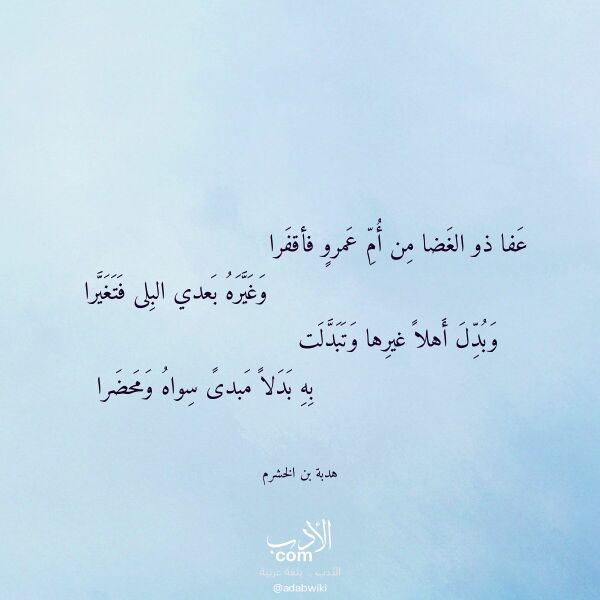 عَفا ذو الغَضا مِن أُمِّ عَمروٍ فأقفَرا
وَغَيَّرَهُ بَعدي البِلى فَتَغَيَّرا
وَبُدِّلَ أَهلاً غيرِها وَتَبَدَّلَت
بِهِ بَدَلاً مَبدىً سِواهُ وَمَحضَرا
هدبة بن الخشرم
الأدب
com
الأدب .. بلغة عربية
@adabwiki